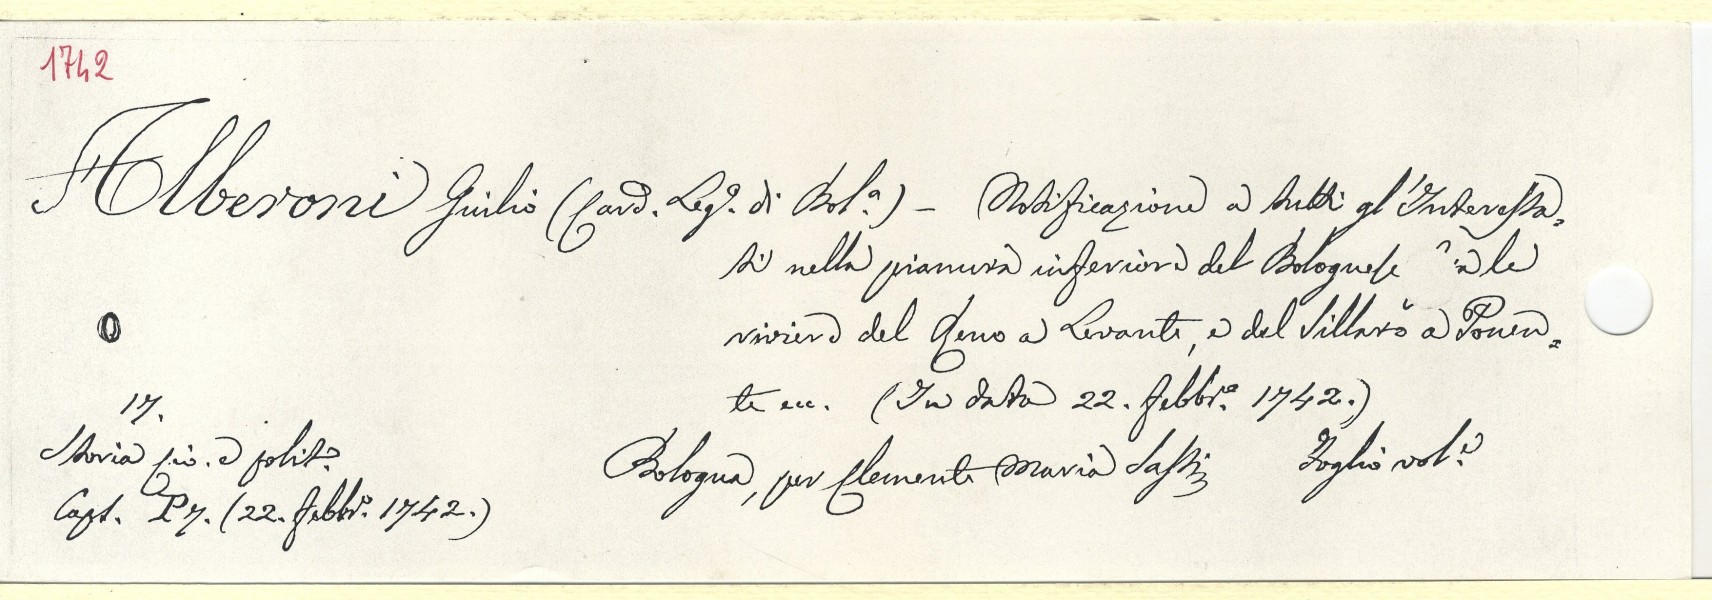 1742
Alberoni Giulio (Card. Leg.º di Bol.ª) – Notificazione a tutti gl'Interessa=
ti nella pianura inferiore del Bolognese le
riviera del Reno a Levante, e del Sillaro a Ponen=
te ecc. (In data 22. febbr.º 1742.)
17.
Storia civ. e polit.ª
Bologna, per Clemente Maria Sassi Foglio vol.e
Capt. P7. (22. febbr.º 1742.)